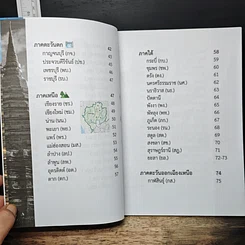 ภาคตะวันตก
กาญจนบุรี (กจ.) 42
ประจวบคีรีขันธ์ (ปข.) 44
เพชรบุรี (พบ.) 46
ราชบุรี (รบ.) 47
ภาคเหนือ
เชียงราย (ชร.)
เชียงใหม่ (ชม.)
น่าน (นน.)
พะเยา (พย.)
แพร่ (พร.)
แม่ฮ่องสอน (มส.)
ลำปาง (ลป.)
ลำพูน (ลพ.)
อุตรดิตถ์ (อต.)
ตาก (ตก.) 57
ภาคใต้ 58
กระบี่ (กบ.)
ชุมพร (ชพ.)
ตรัง (ตง.)
นครศรีธรรมราช (นศ.)
นราธิวาส (นธ.)
ปัตตานี (ปน.)
พังงา (พง.)
พัทลุง (พท.)
ภูเก็ต (ภก.)
ระนอง (รน.)
สตูล (สต.)
สงขลา (สข.)
สุราษฎร์ธานี (สฎ.)
ยะลา (ยล.) 72-73
ภาคตะวันออกเฉียงเหนือ 74
กาฬสินธุ์ (กส.) 75